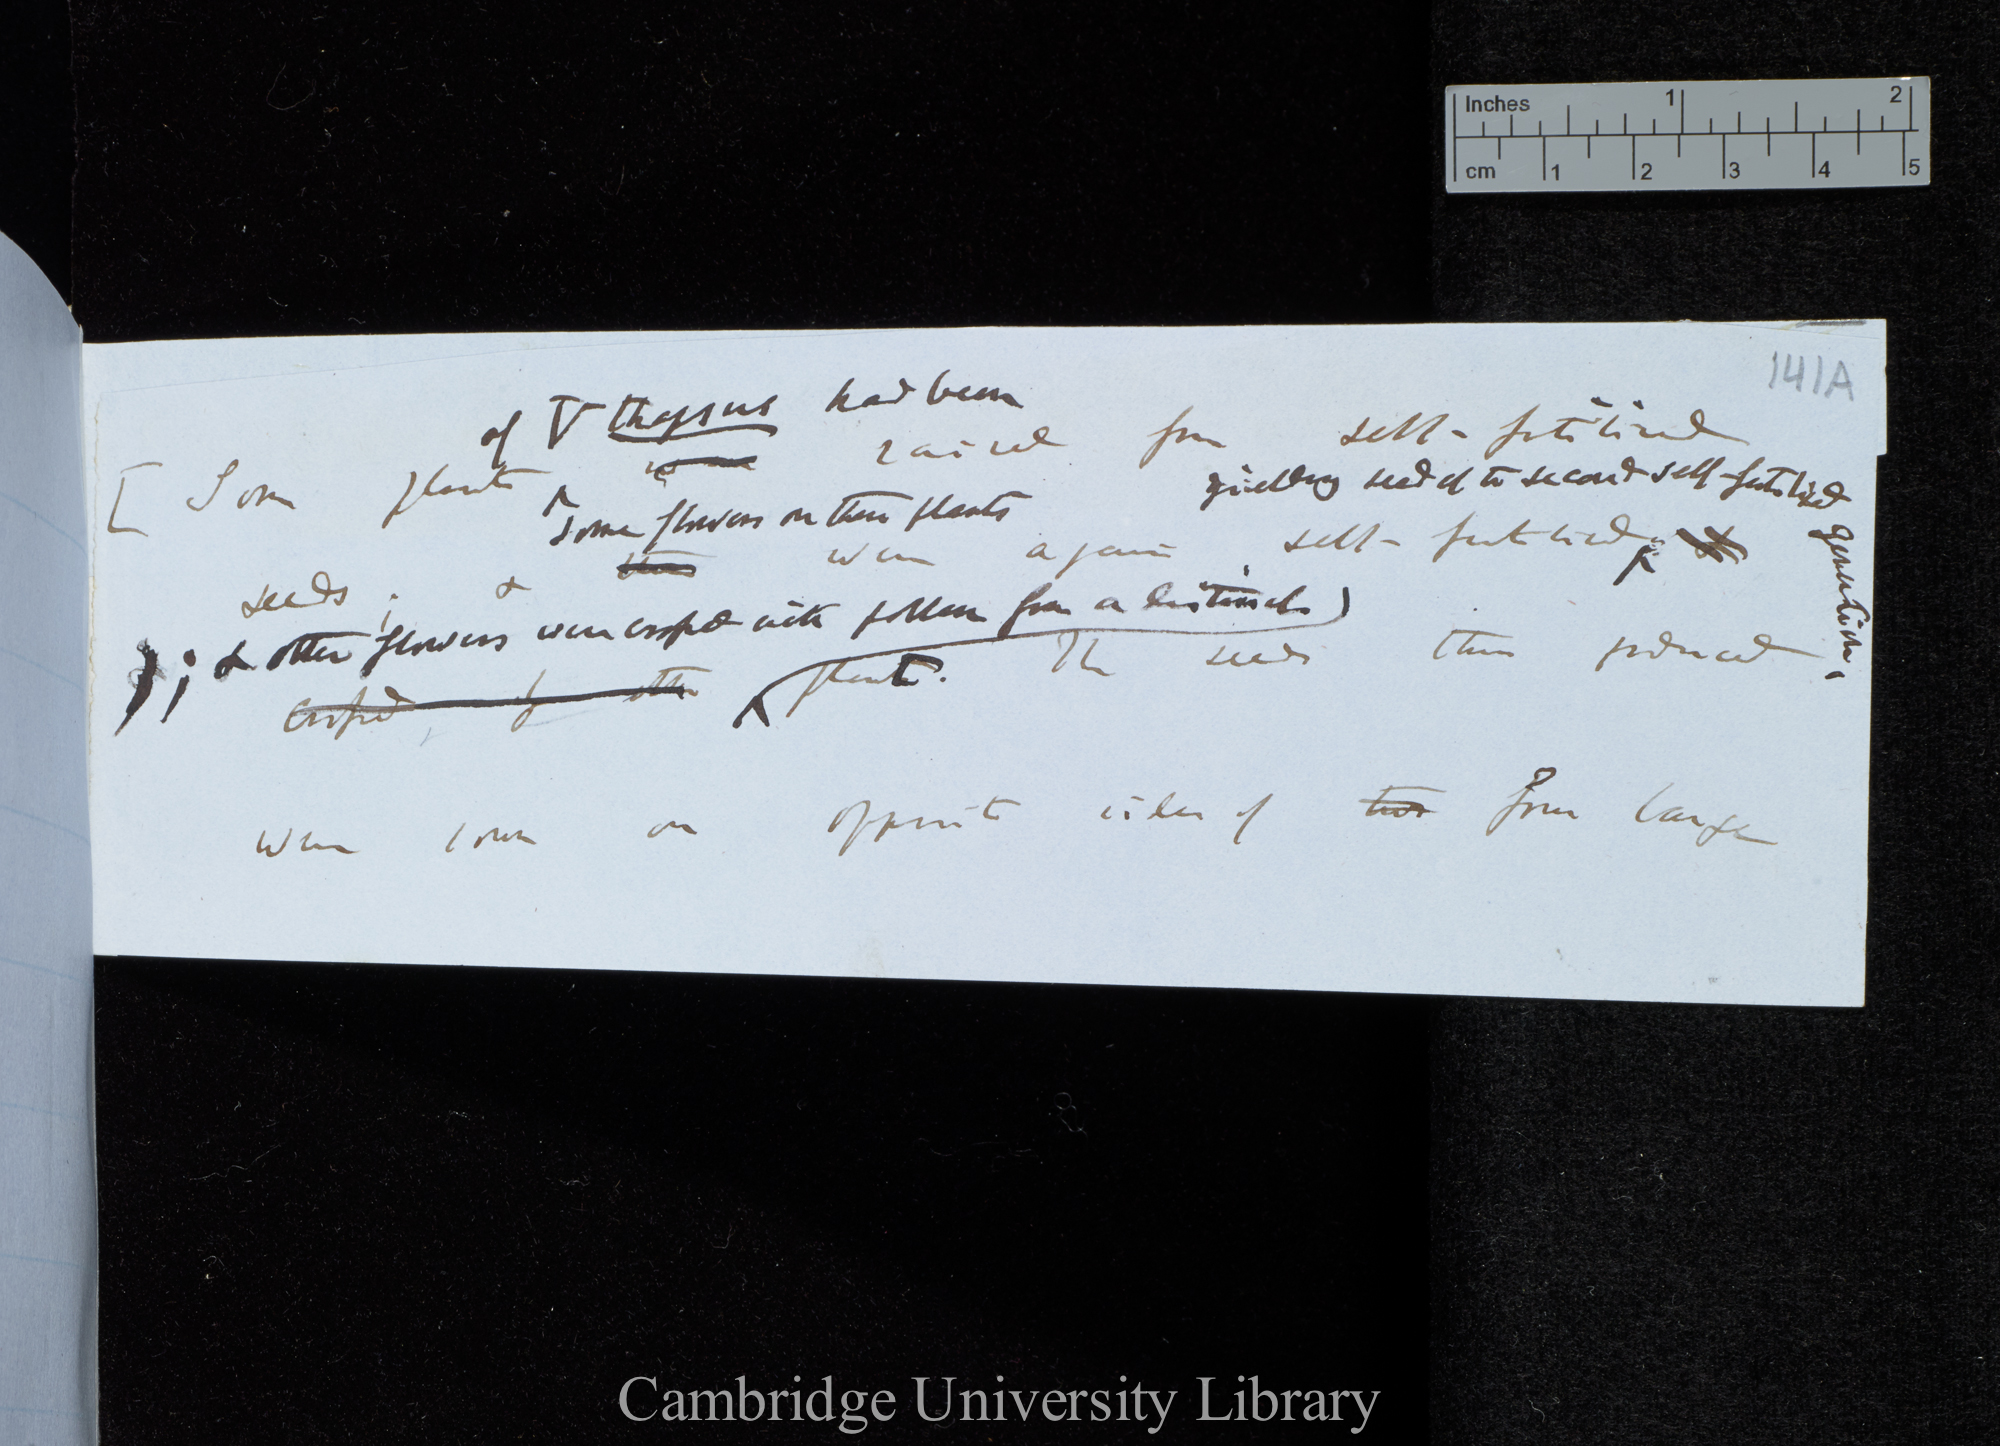 Inches 1 2
cm 1 2 3 4 5
141A
of V thapsus had been
[ Some plants were raised from self-fertilised
some flowers on these plants
yielding seed of the second self-fertilised generation.
seeds; & these were again self-fertilised, &
); & other flowers were crossed with pollen from a distinct
crossed, by other plant. The seeds thus produced
were sown on opposite sides of two four large
Cambridge University Library